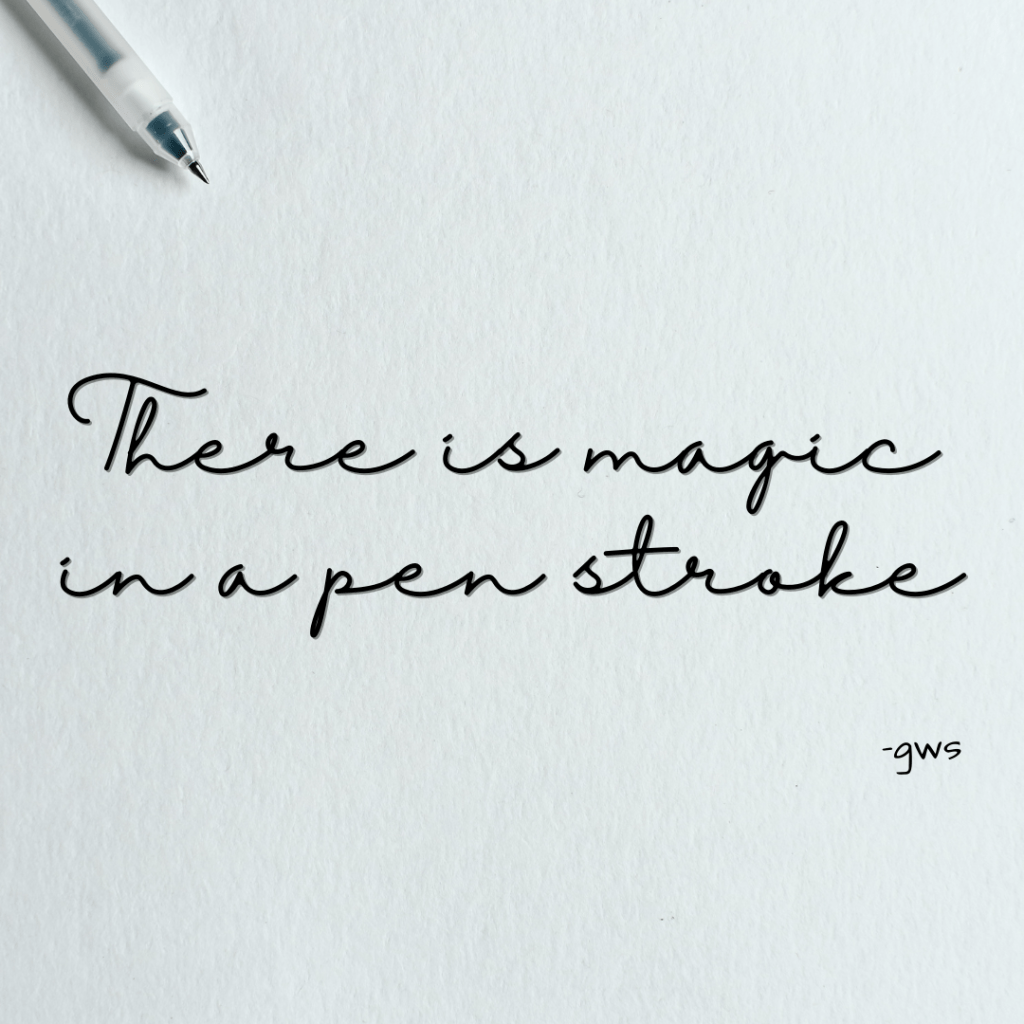 There is magic
in a pen stroke
-gws